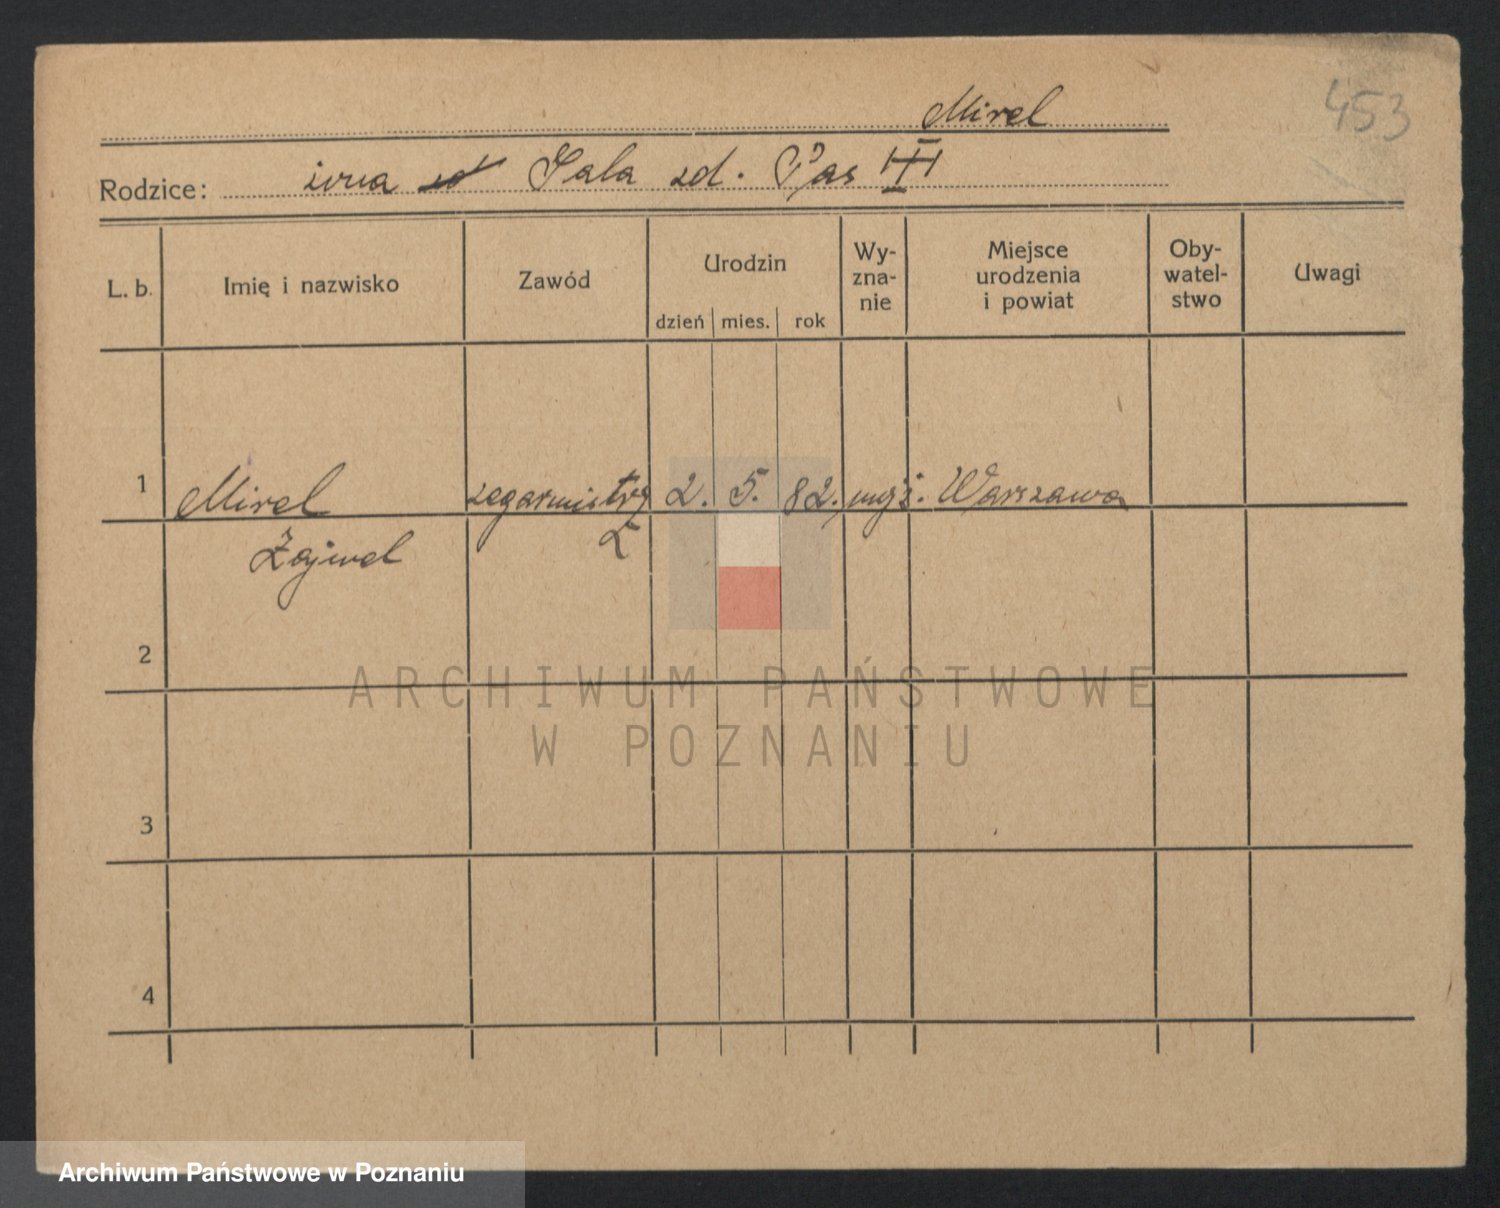 453
Mirel
Rodzice: Icua Sala zd. Pas III
L. b. Imię i nazwisko Zawód Urodzin dzień mies. rok Wy-zna-nie Miejsce urodzenia i powiat Oby-watel-stwo Uwagi
1 Mirel zegarmistrz 2. 5. 82. mojż. Warszawa
Zajwel
2
3
4
ARCHIWUM PAŃSTWOWE
W POZNANIU
Archiwum Państwowe w Poznaniu